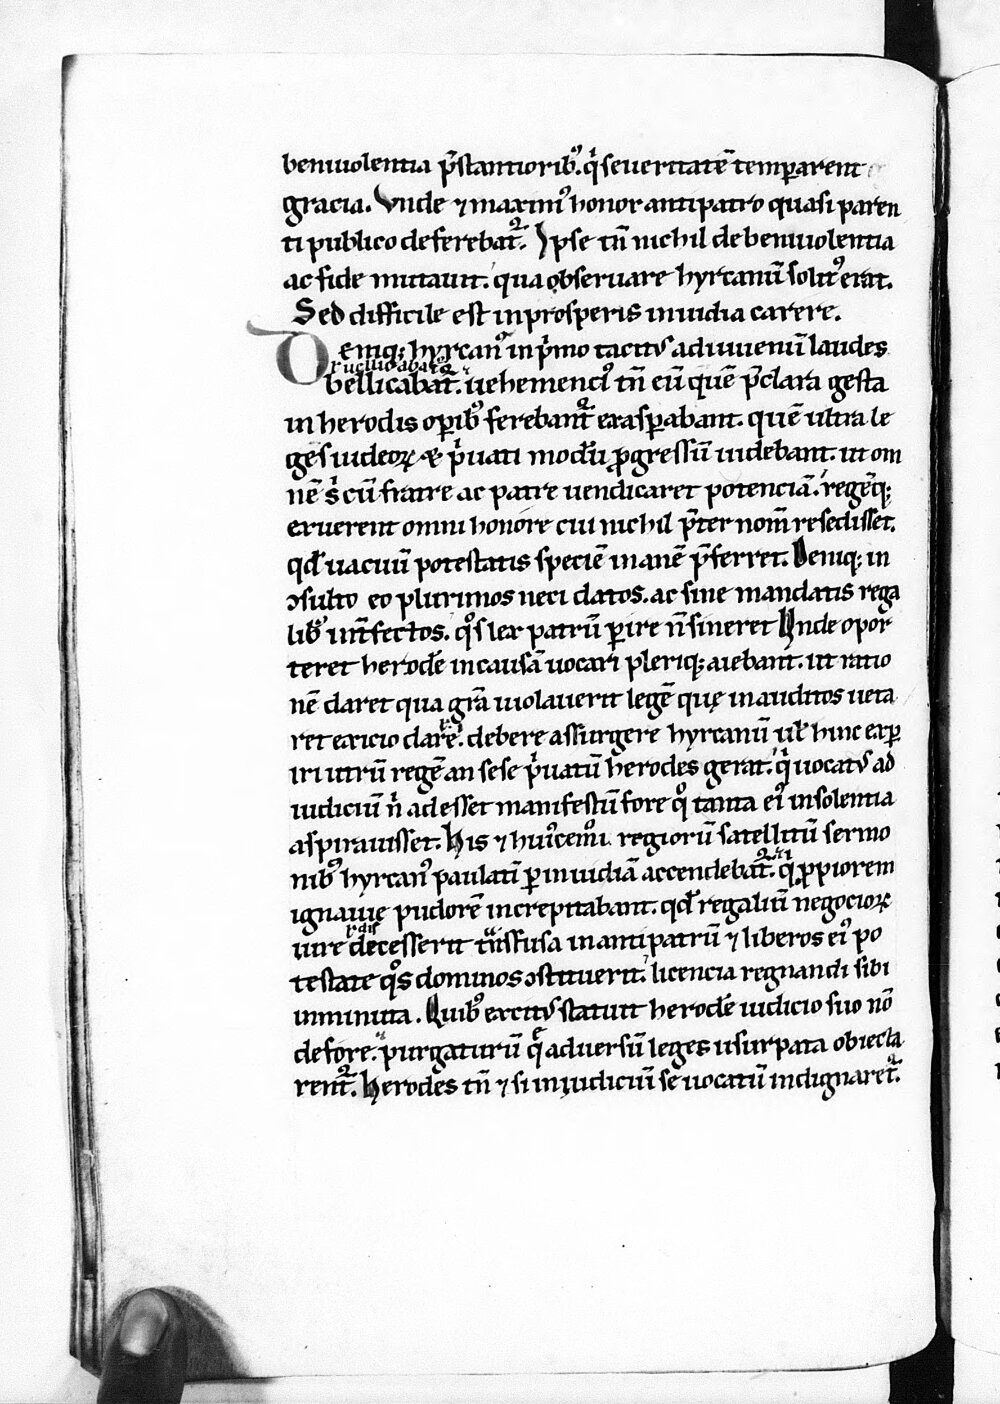 beniuolentia p̄stantiorib᷒. q̇ seueritatē temꝑarent
gracia. Vnde ⁊ maxim᷒ honor antipatro quasi paren
ti publico deferebat᷑. Ipse tn̄ nichil de beniuolentia
ac fide mutauit. qua obseruare hyrcanū solit᷒ erat.
Sed difficile est in prosperis inuidia carere.
Deniq; hyrcan᷒ in p̍mo tacitus ad iuuenū laudes
bellicabat᷑. uehemenci᷒ tn̄ eū quē p̄clara gesta
in herodis oꝑib᷒ ferebant᷑ exasꝑabant. quē ultra le
ges iudeoꝝ & p̍uati modū ꝓgressū uidebant. ut om
nē s̍ cū fratre ac patre uendicaret potenciā. regēq;
exuerent omni honore cui nichil p̄ter nom̄ resedisset.
qd̄ uacuū potestatis speciē inanē p̄ferret. Deniq; in
ↄsulto eo plurimos neci datos. ac sine mandatis rega
lib᷒ int̄fectos. q᷒s lex patrū ꝑire n̄ sineret Vnde opor
teret herodē in causā uocari pleriq; aiebant. ut ratio
nē daret qua grā uiolauerit legē quę inauditos ueta
ret exicio darē. debere assurgere hyrcanū ut̄ hinc exꝑ
iri utrū regē an sese p̍uatū herodes gerat. q̍ uocatus ad
iudiciū n̄ adesset manifestū fore q᷒ tanta ei᷒ insolentia
aspirauisset. His ⁊ hui᷒cem᷒i regiorū satellitū sermo
nib᷒ hyrcan᷒ paulatī ꝑ inuidiā accendebat᷑. q ꝓpiorem
ignauię pudorē increpitabant. qd̄ regaliū negocioꝝ
iure decesserit tn̄sfusa in antipatrū ⁊ liberos ei᷒ po
testate q᷒s dominos ↄstituerit. licencia regnandi sibi
inminuta. Quib᷒ excitus statuit herodē iudicio suo nō
defore. purgaturū q̄ aduersū leges usurpata obiecta
rent᷑. Herodes tn̄ ⁊ si in iudiciū se uocatū indignaret᷑.